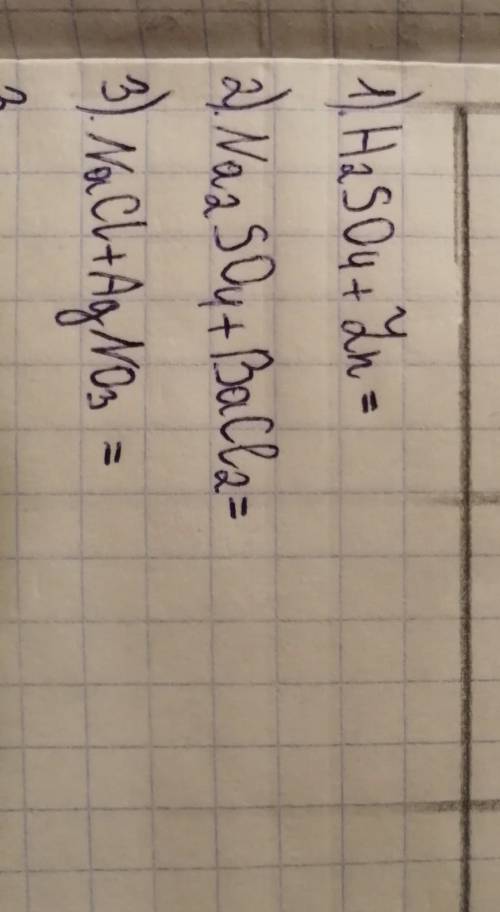 1). H₂SO₄ + Zn =
2). Na₂SO₄ + BaCl₂ =
3). NaCl + AgNO₃ =